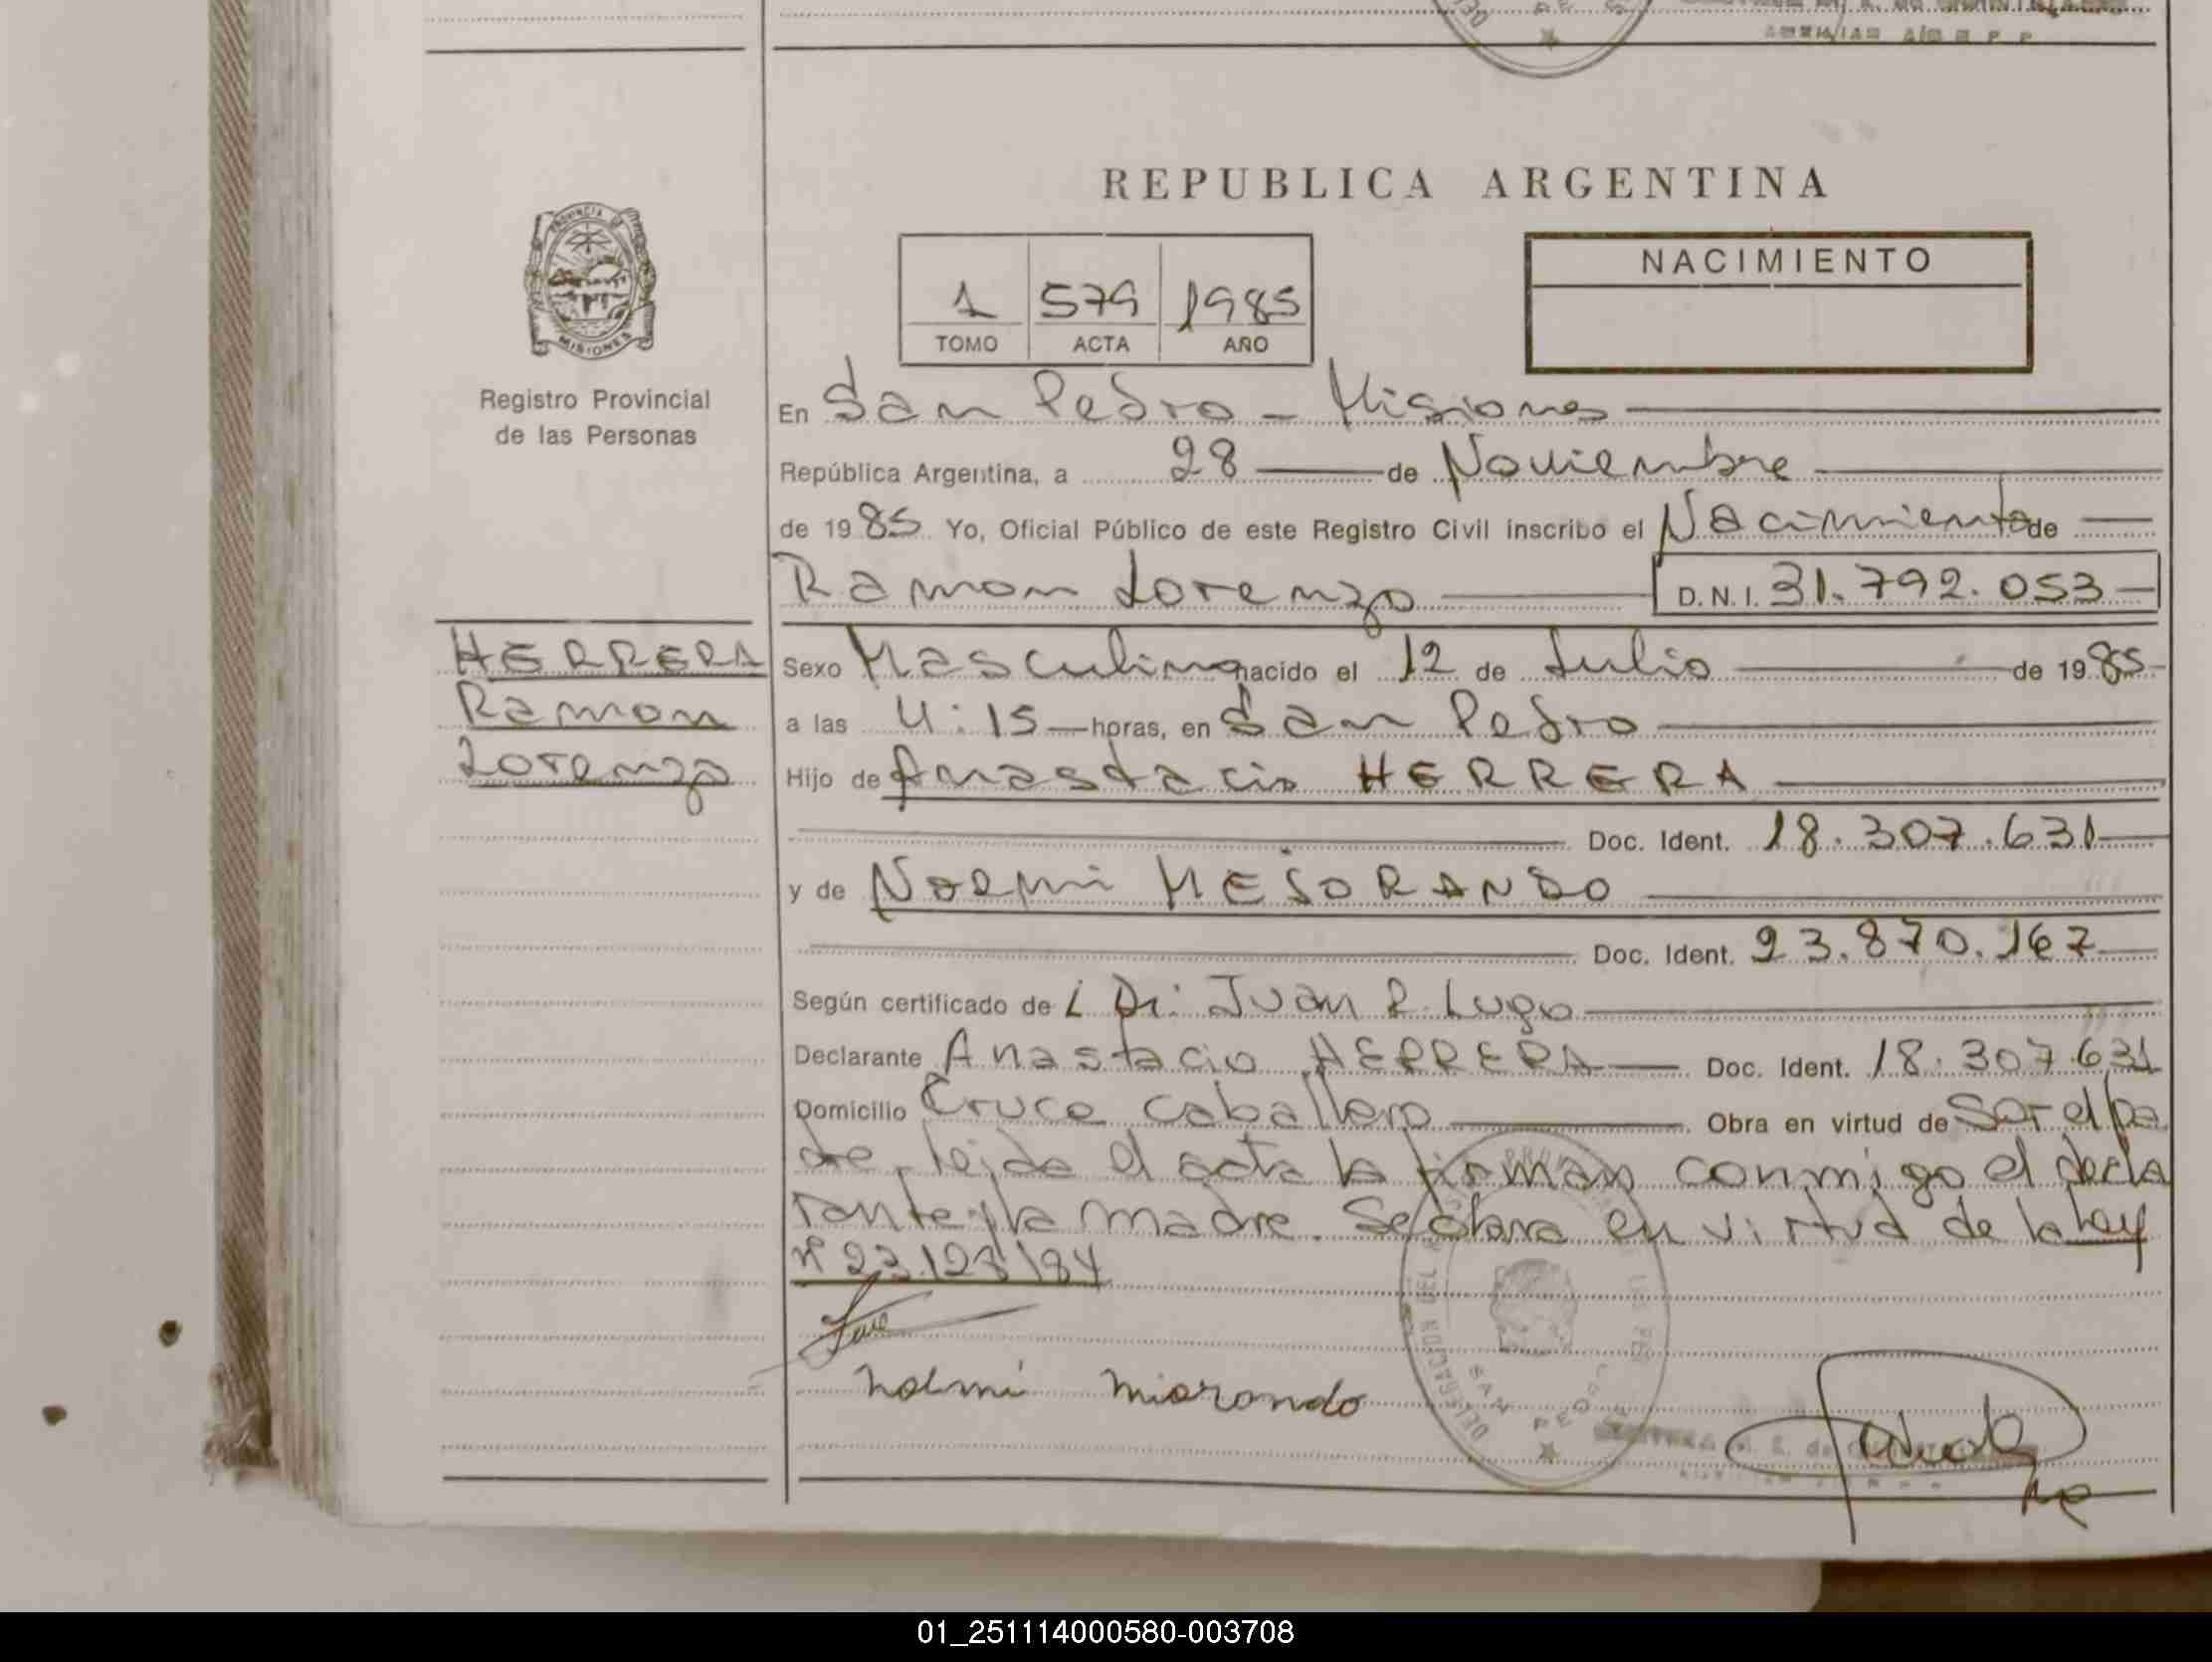 REPUBLICA ARGENTINA
PROVINCIA DE
MISIONES
Registro Provincial
de las Personas
1 579 1985
TOMO ACTA AÑO
NACIMIENTO
En San Pedro - Misiones
República Argentina, a 28 de Noviembre
de 1985 Yo, Oficial Público de este Registro Civil inscribo el Nacimiento de
Ramon Lorenzo D.N.I. 31.792.053
HERRERA
Ramon
Lorenzo
Sexo Masculino nacido el 12 de Julio de 1985
a las 4:15 horas, en San Pedro
Hijo de Anastacio HERRERA
Doc. Ident. 18.307.631
y de Noemi MEJORANDO
Doc. Ident. 23.870.167
Según certificado de Dr. Juan R. Lugo
Declarante Anastacio HERRERA Doc. Ident. 18.307.631
Domicilio Cruce Caballero Obra en virtud de Ser el pa
dre, leida el acta la firman conmigo el decla
rante y la madre. Se labra en virtud de la Ley
Nº 23.128/84
noemi miorando
SAN PEDRO
01_251114000580-003708